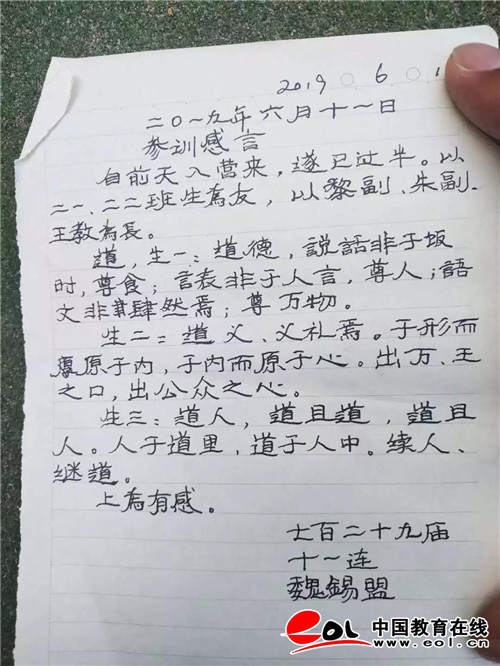 2019 6 1
二〇一九年六月十一日
参训感言
自前天入营来，遂已过半。以
二一、二二班生為友，以黎副、朱副、
王教為長。
道，生一：道德，說話非于饭
时，尊食；言表非于人言，尊人；語
文非肆然焉；尊万物。
生二：道义、义礼焉。于形而
原于内，于内而原于心。出万、王
之口，出公众之心。
生三：道人，道且道，道且
人。人于道里，道于人中。续人、
继道。
上為有感。
七百二十九届
十一连
魏錫盟
eol 中国教育在线
www.eol.cn